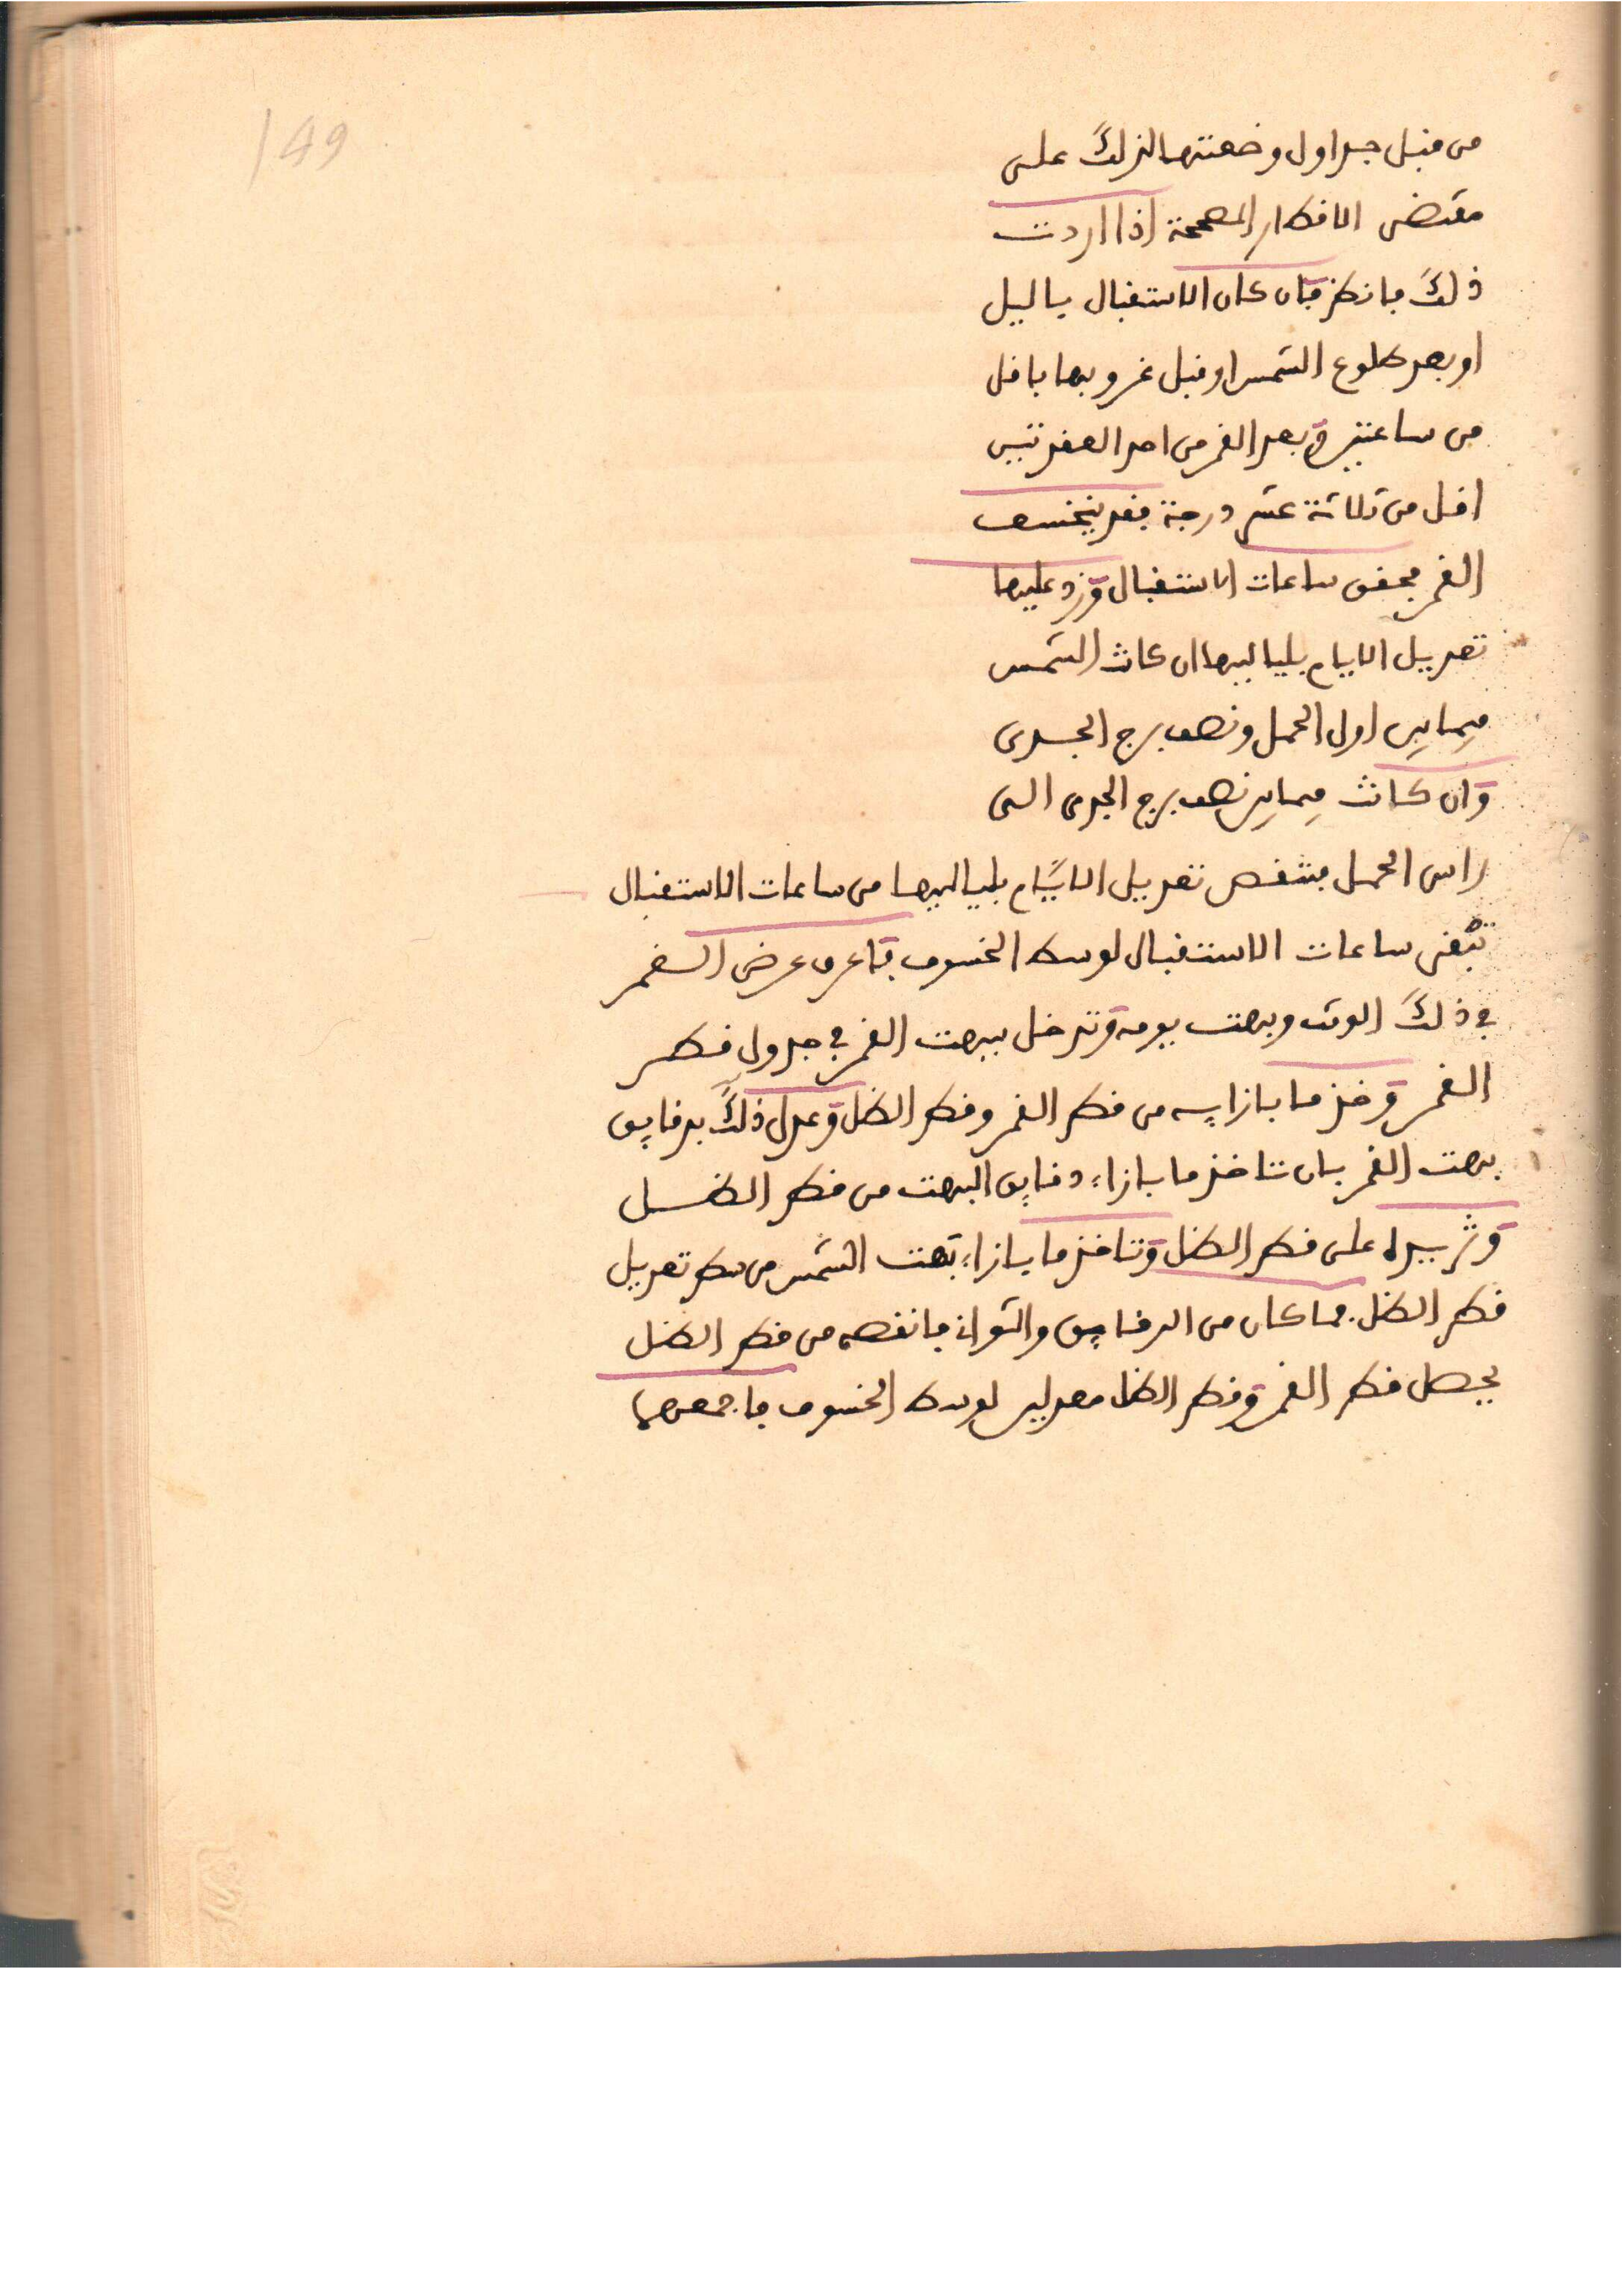 149
من قبل جداول وضعتها لذلك على
مقتضى الاقطار المصححة اذا اردت
ذلك فانظر فان كان الاستقبال باليل
او بعد طلوع الشمس او قبل غروبها باقل
من ساعتين وبعد القمر من احد العقدتين
اقل من ثلاثة عشر درجة فقد ينخسف
القمر فحقق ساعات الاستقبال وزد عليها
تعديل الايام بلياليها ان كانت الشمس
فيما بين اول الحمل ونصف برج الجدى
وان كانت فيما بين نصف برج الجدى الى
راس الحمل فتنقص تعديل الايام بلياليها من ساعات الاستقبال
تبقى ساعات الاستقبال لوسط الخسوف فاعرف عرض القمر
في ذلك الوقت وبهت يومه وتدخل ببهت القمر في جدول قطر
القمر وخذ ما بازايه من قطر القمر وقطر الظل وعدل ذلك بدقايق
بهت القمر بان تاخذ ما بازاء دقايق البهت من قطر الظل
وتزيده على قطر الظل وتاخذ ما بازاء بهت الشمس من سطر تعديل
قطر الظل فما كان من الدقايق والثواني فانقصه من قطر الظل
يحصل قطر القمر وقطر الظل معدلين لوسط الخسوف فاجمعهما